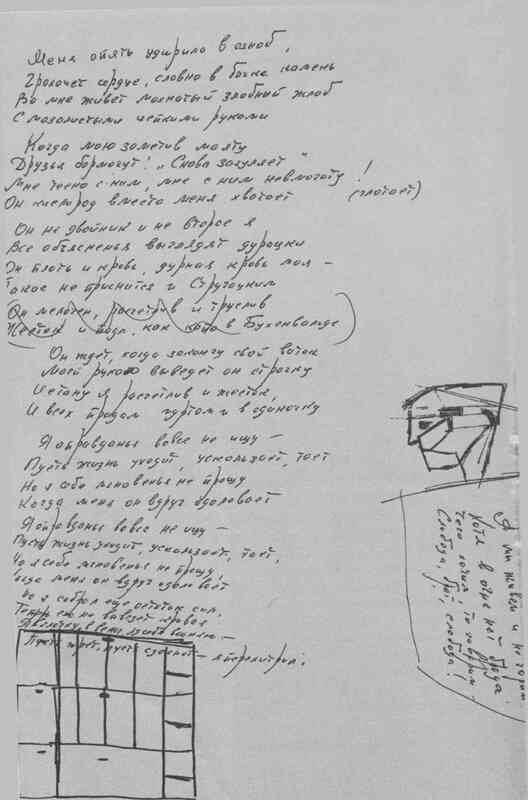 Меня опять ударило в озноб,
Грохочет сердце, словно в бочке камень
Во мне живет мохнатый злобный жлоб
С мозолистыми цепкими руками
Когда мою заметив маету
Друзья бормочут: „Снова загуляет"
Мне тесно с ним, мне с ним невмоготу!
Он кислород вместо меня хватает (глотает)
Он не двойник и не второе я
Все объясненья выглядят дурацки
Он плоть и кровь, дурная кровь моя —
Такое не приснится и Стругацким
Он мелочен, расчетлив и труслив
и подл, как в Бухенвальде
Он ждет, когда закончу свой виток
Моей рукою выведет он строчку
И стану я расчетлив и жесток,
И всех продам гуртом и в одиночку
Я оправданья вовсе не ищу —
Пусть жизнь уходит, ускользает, тает
Но я себе мгновенья не прощу
Когда меня он вдруг одолевает
Я оправданья вовсе не ищу —
Пусть жизнь уходит, ускользает, тает,
Но я себе мгновенья не прощу,
Когда меня он вдруг одолевает
Но я собрал еще остаток сил,
Теперь его не вывезет кривая
Я в глотку, в вены яд себе вгоняю —
Пусть жрет, пусть сдохнет — я перехитрил!
А мы живем и не горим
Хотя в огне нет брода
Чего хотим, то говорим —
Свобода, брат, свобода!